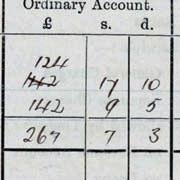 Ordinary Account.
£ s. d.
124
142 17 10
142 9 5
267 7 3